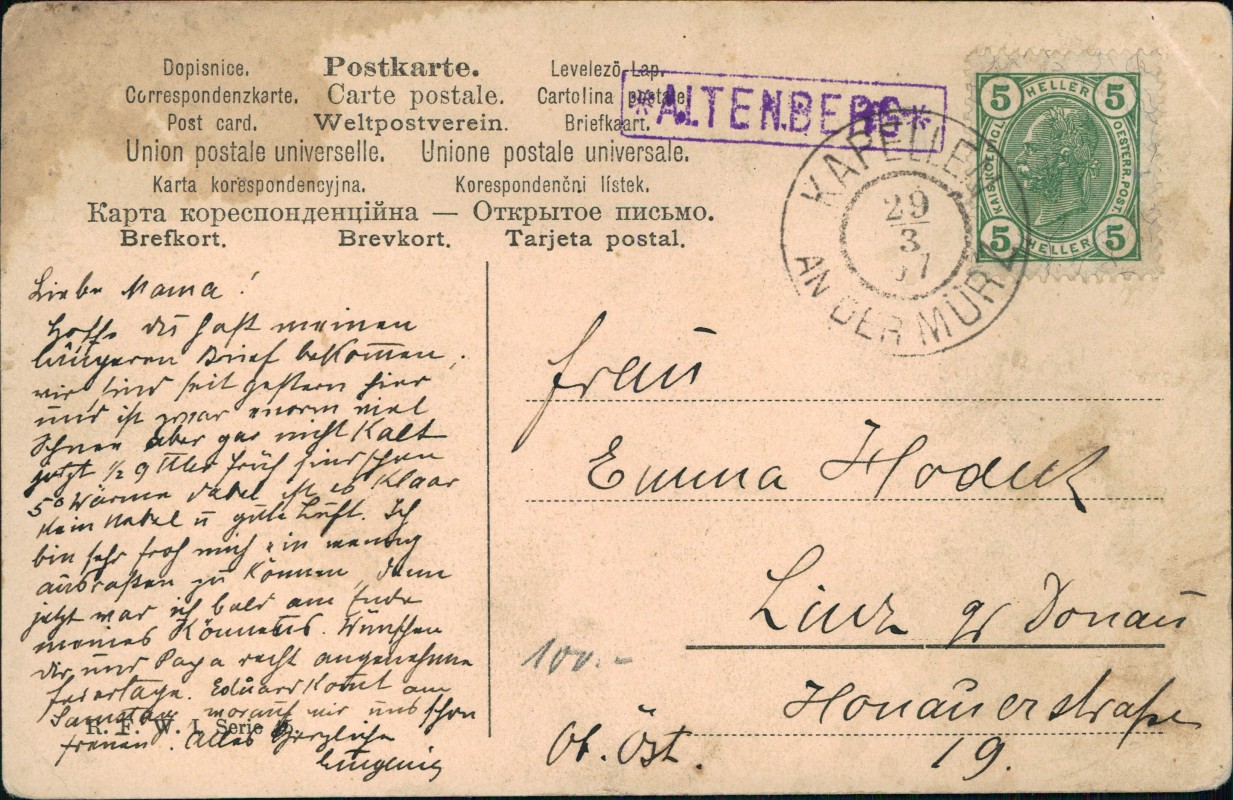 Dopisnice. Postkarte. Levelező Lap.
Correspondenzkarte. Carte postale. Cartolina postale.
Post card. Weltpostverein. Briefkaart.
Union postale universelle. Unione postale universale.
Karta korespondencyjna. Korespondenčni lístek.
Карта кореспонденційна — Открытое письмо.
Brefkort. Brevkort. Tarjeta postal.
*ALTENBERG*
KAPELLEN
29
3
07
AN DER MÜRZ
5 HELLER 5
KAIS. KOENIGL. OESTERR. POST
5 HELLER 5
Liebe Mama!
Hoffe du hast meinen
längeren Brief bekommen,
wir sind seit gestern hier
und ist zwar enorm viel
Schnee aber gar nicht kalt
jetzt 1/2 9 Uhr früh sind schon
5° Wärme dabei ist es klaar
kein Nebel u gute Luft. Ich
bin sehr froh mich ein wenig
ausrasten zu können, denn
jetzt war ich bald am Ende
meines Könnens. Wünschen
dir und Papa recht angenehme
Feiertage. Eduard komt am
Samstag worauf wir uns schon
freuen. Alles Herzliche
Eugenie
R. F. W. I. Serie
Frau
Emma Hodek
Linz a/ Donau
100.-
Honauerstraße
Ob. Öst. 19.